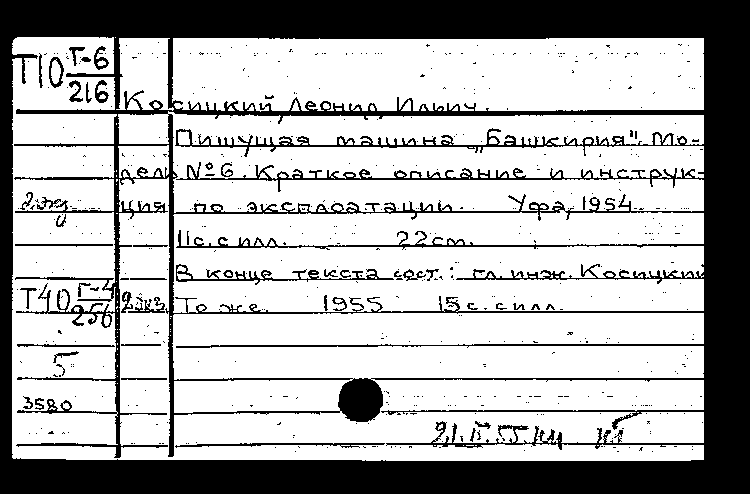 Т10 Г-6
216
Косицкий, Леонид Ильич.
Пишущая машина „Башкирия". Мо-
дель №6. Краткое описание и инструк-
2 экз ция по эксплоатации. Уфа, 1954
11 с. с илл. 22 см.
В конце текста сост.: гл. инж. Косицкий
Т40 Г-4 2 экз. То же. 1955 15 с. с илл.
256
5
3580
21.IV.55.